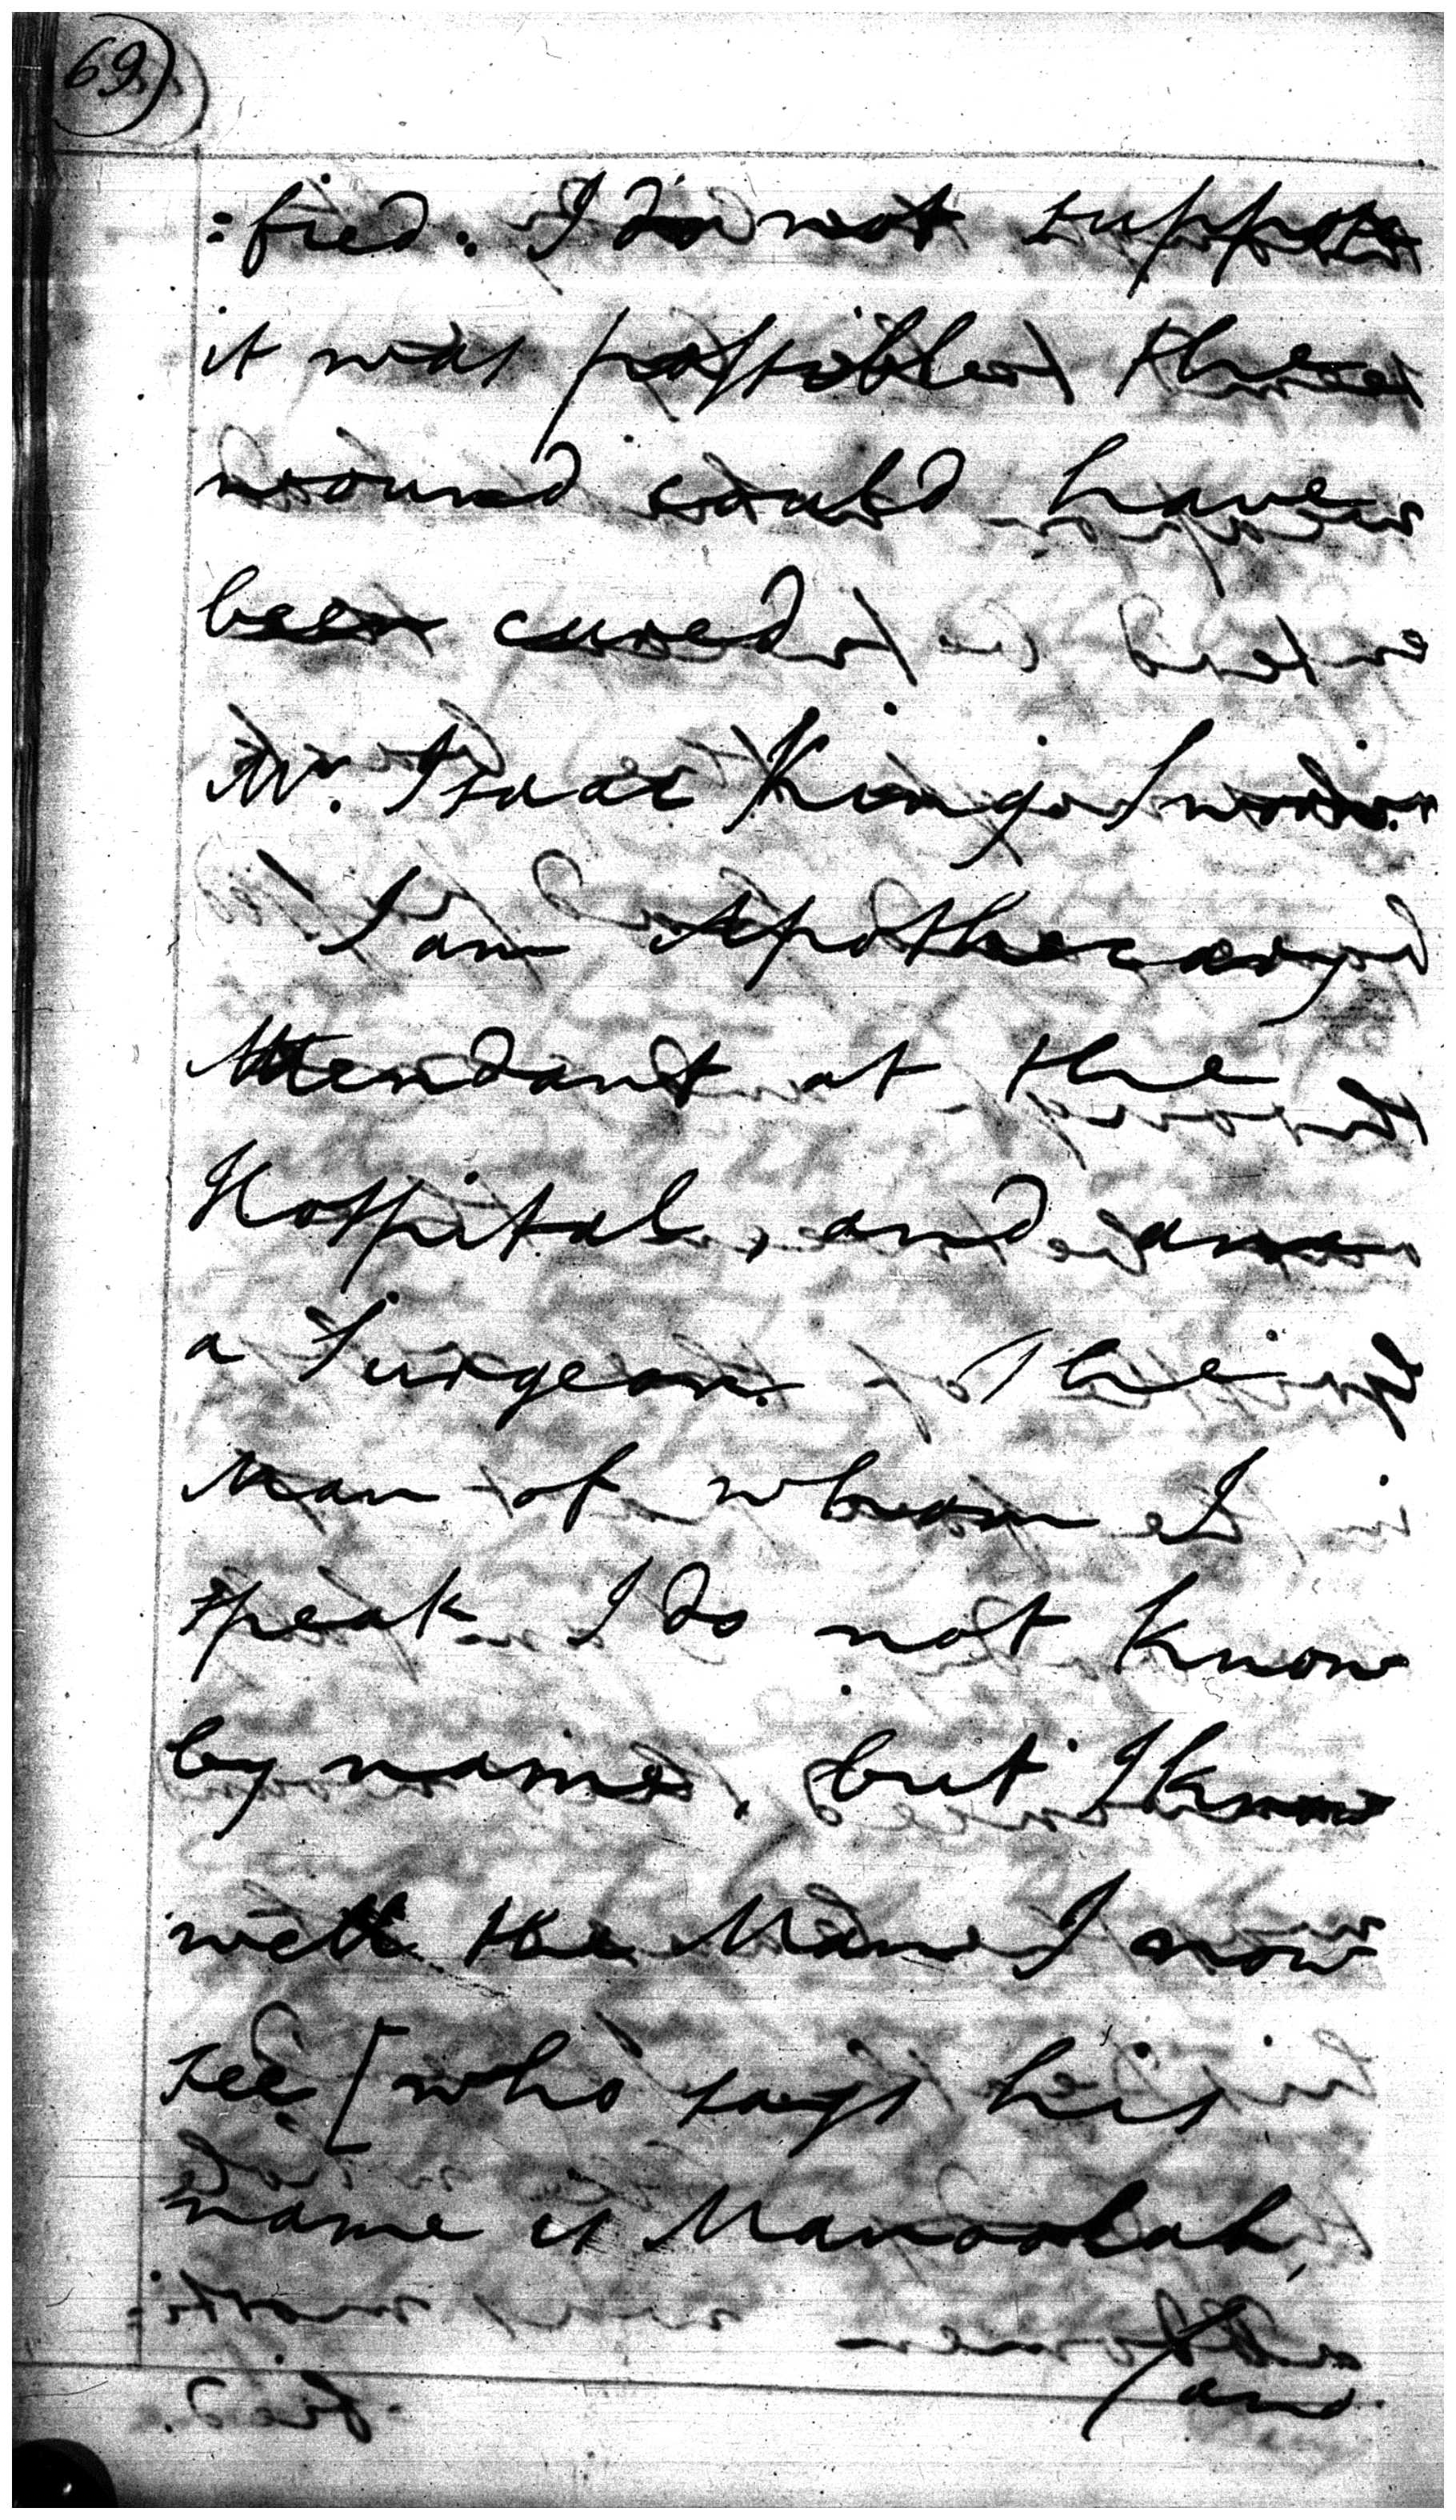 69
:fied. I do not suppose
it was possible the
wound could have
been cured.
Mr. Isaac King. Sworn.
I am Apothecary
Attendant at the
Hospital, and am
a Surgeon. The
Man of whom I
speak I do not know
by name, but I know
well the Man I now
see [who says his
name is
and